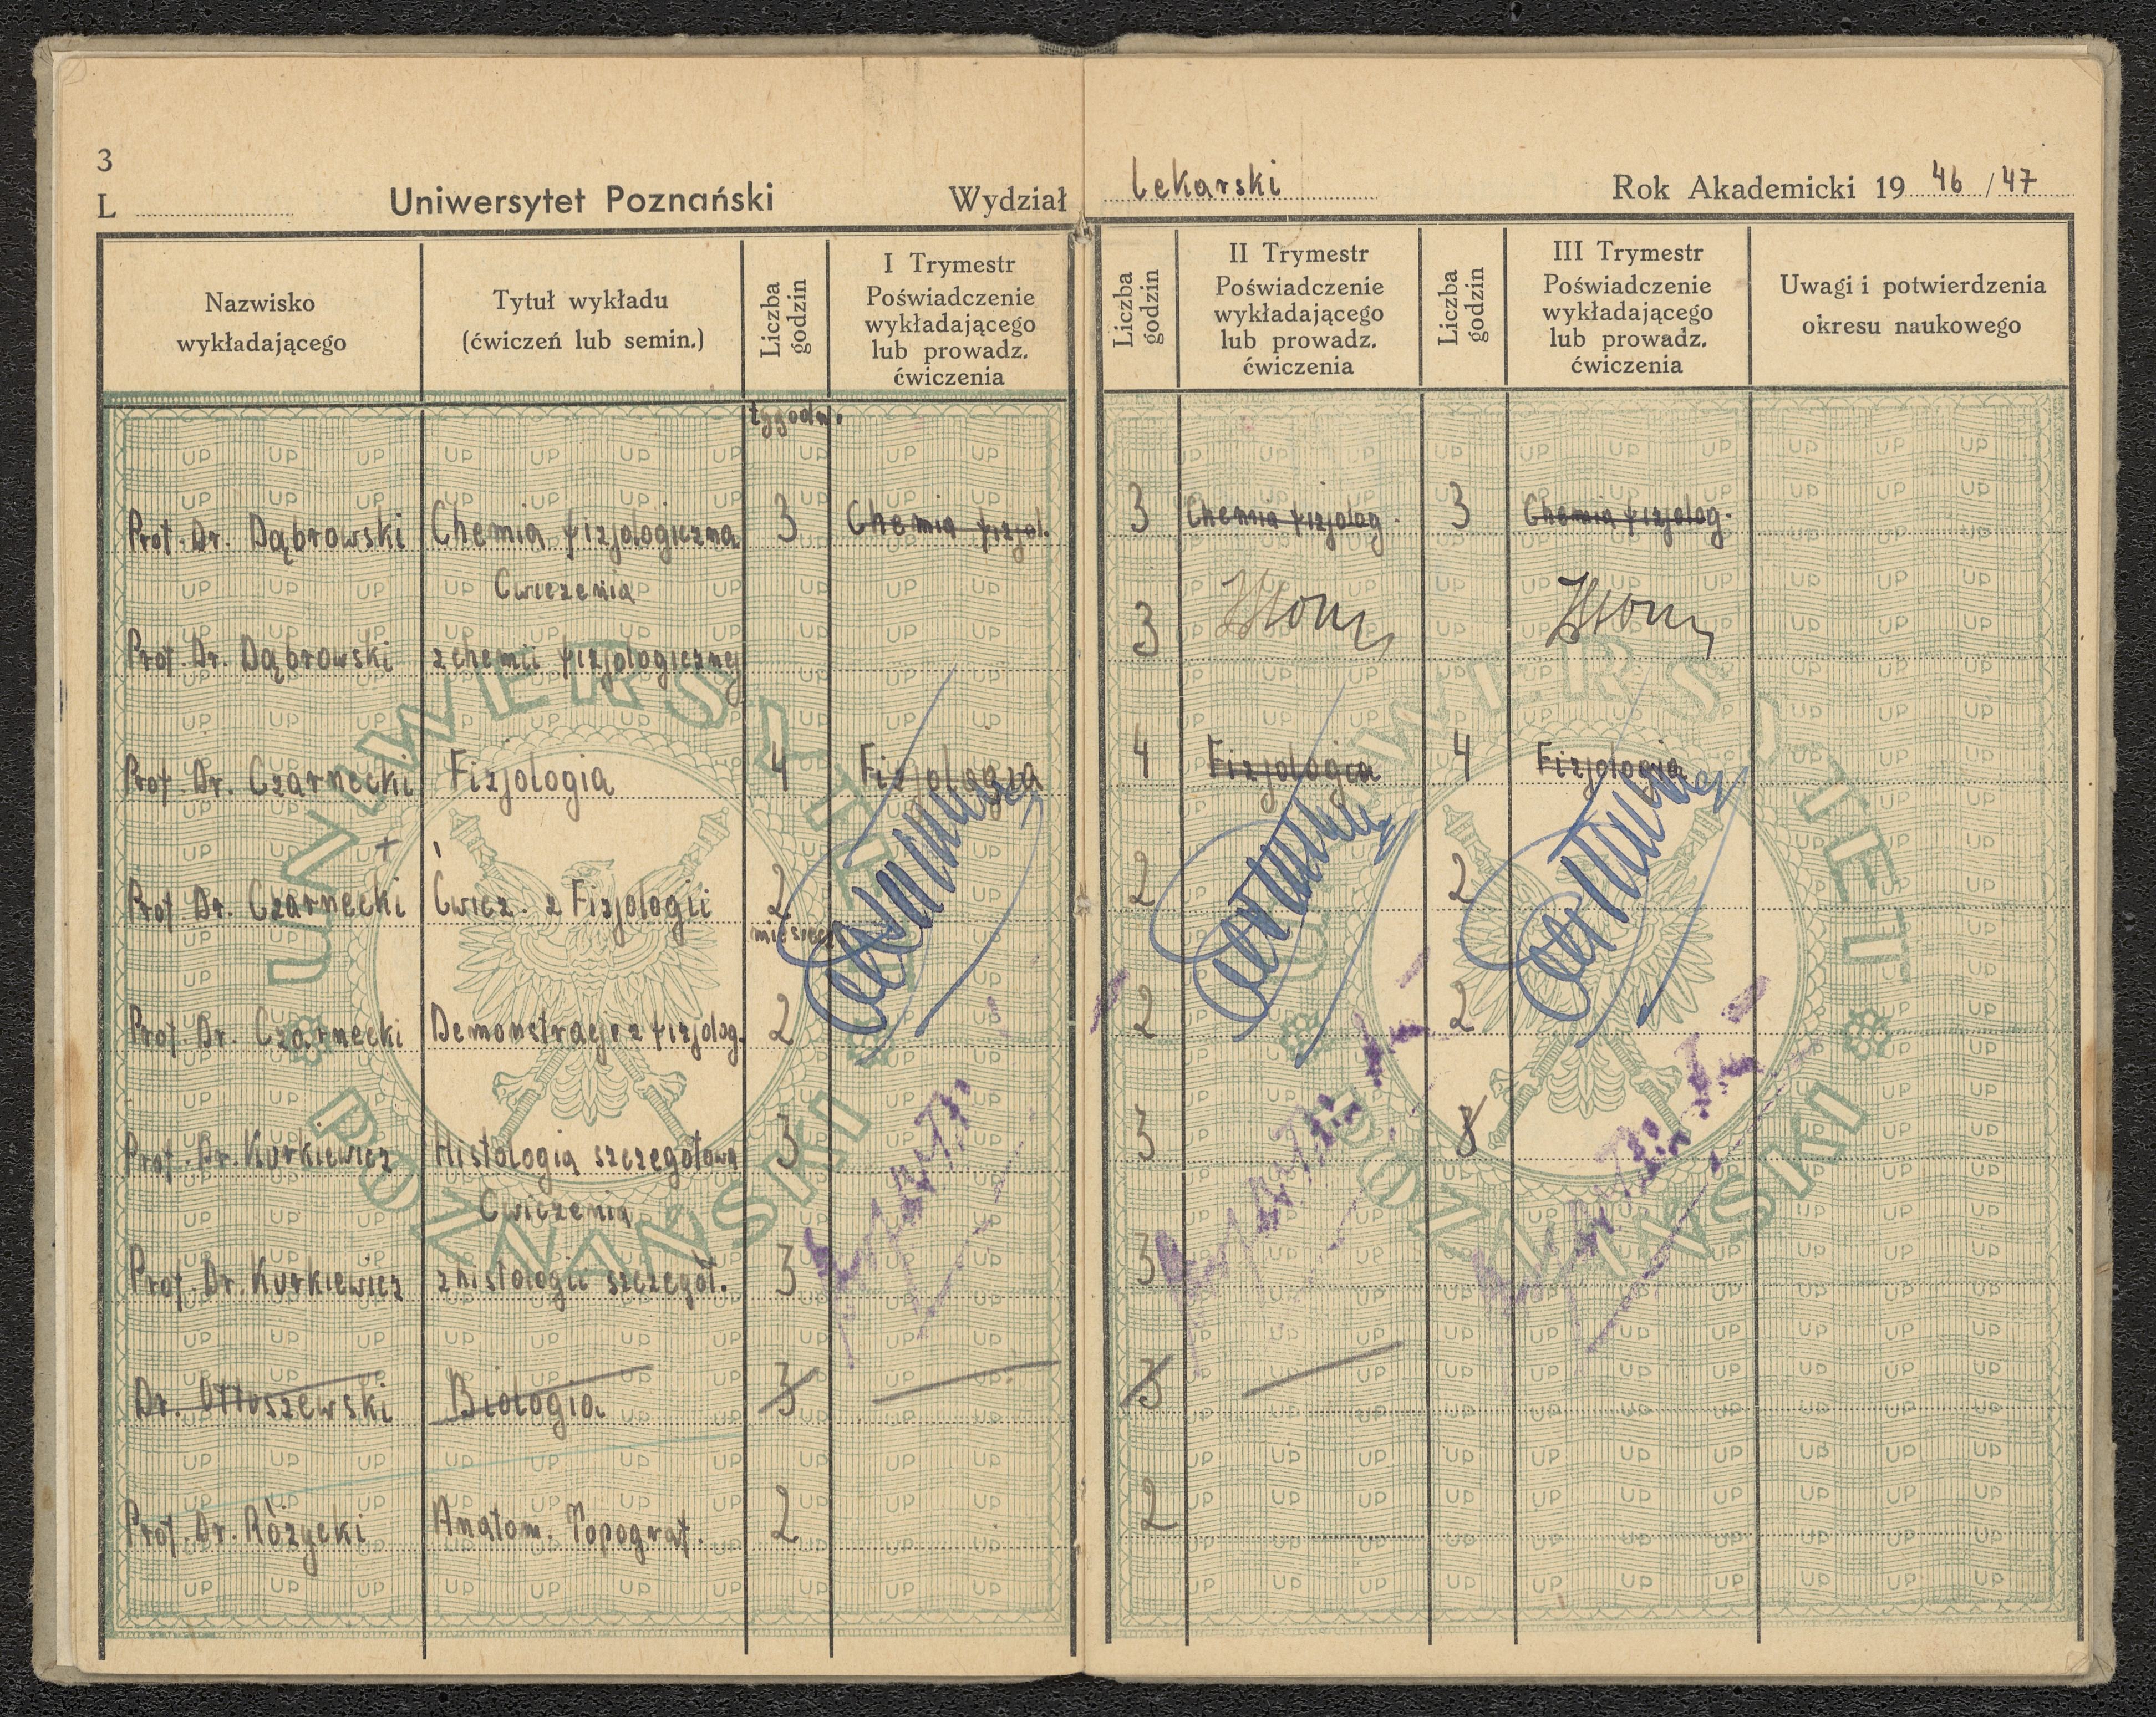 3
L Uniwersytet Poznański Wydział Lekarski Rok Akademicki 19 46/47
Nazwisko wykładającego
Tytuł wykładu (ćwiczeń lub semin.)
Liczba godzin
I Trymestr
Poświadczenie
wykładającego
lub prowadz.
ćwiczenia
Liczba godzin
II Trymestr
Poświadczenie
wykładającego
lub prowadz.
ćwiczenia
Liczba godzin
III Trymestr
Poświadczenie
wykładającego
lub prowadz.
ćwiczenia
Uwagi i potwierdzenia
okresu naukowego
tygodn.
Prof. Dr. Dąbrowski Chemia fizjologiczna 3 Chemia fizjol. 3 Chemia fizjolog. 3 Chemia fizjolog.
Cwiczenia
Prof. Dr. Dąbrowski z chemii fizjologicznej 3
Prof. Dr. Czarnecki Fizjologia 4 Fizjologia 4 Fizjologia 4 Fizjologia
Prof. Dr. Czarnecki Ćwicz. z Fizjologii 2 2 2
miesięcz.
Prof. Dr. Czarnecki Demonstracje z fizjolog. 2 2 2
Prof. Dr. Kurkiewicz Histologia szczegółowa 3 3 3
Cwiczenia
Prof. Dr. Kurkiewicz z histologii szczegół. 3 3
Dr. Biologia 3 3
Prof. Dr. Różycki Anatom. Topograf. 2 2
UNIWERSYTET POZNAŃSKI
UNIWERSYTET POZNAŃSKI